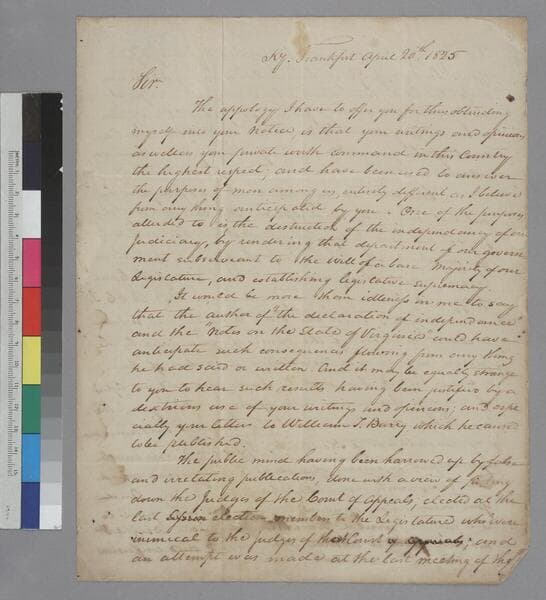 Ky. Frankfort April 20th. 1825
Sir.
The appology I have to offer you for thus obtruding
myself into your Notice, is that your writings and opinions,
as well as your private worth command in this Country
the highest respect; and have been used to answer
the purposes of men among us, entirely different as I believe
from any thing anticipated by you. One of the purposes
alluded to is the destruction of the independancy of our
Judiciary, by rendering that department of our govern
ment subservient to the will of a base Majority of our
Legislature, and establishing legislative supremacy.
It would be more than idleness in me to say
that the author of "the declaration of independance"
and the "Notes on the State of Virginia" could have
anticipate such consequences flowing from any thing
he had said or written. And it may be equally strange
to you to hear such results having been justified by a
dextrious use of your writings and opinions; and espe
cially your letters to William T. Barry which he caused
to be published.
The public mind having been harrowed up by false
and irretating publications, done with a view of
down the Judges of the Court of Appeals, elected at the
last election members to the Legislature who were
inimical to the judges of that Court of appeals; and
an attempt was made at the last meeting of the